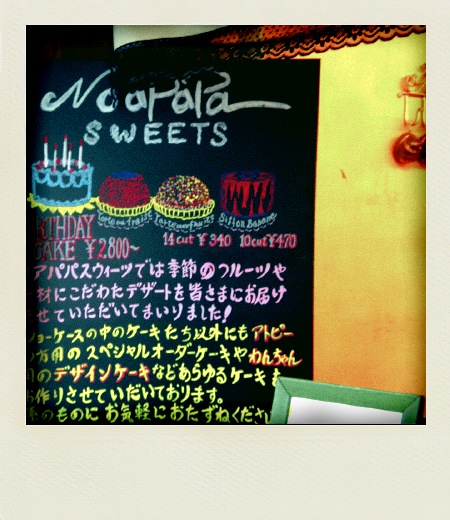 Noapapa
SWEETS
Tarte aux fraises
Tarte aux fruits
Siffon Banane
BIRTHDAY
CAKE ¥2,800~
14cut ¥340 10cut ¥470
アパパスウィーツでは季節のフルーツや
材にこだわたデザートを皆さまにお届け
せていただいてまいりました!
ョーケースの中のケーキたち以外にもアトピー
の方用のスペシャルオーダーケーキやわんちゃん
用のデザインケーキなどあらゆるケーキも
お作りさせていだいております。
のものにお気軽におたずねくださ